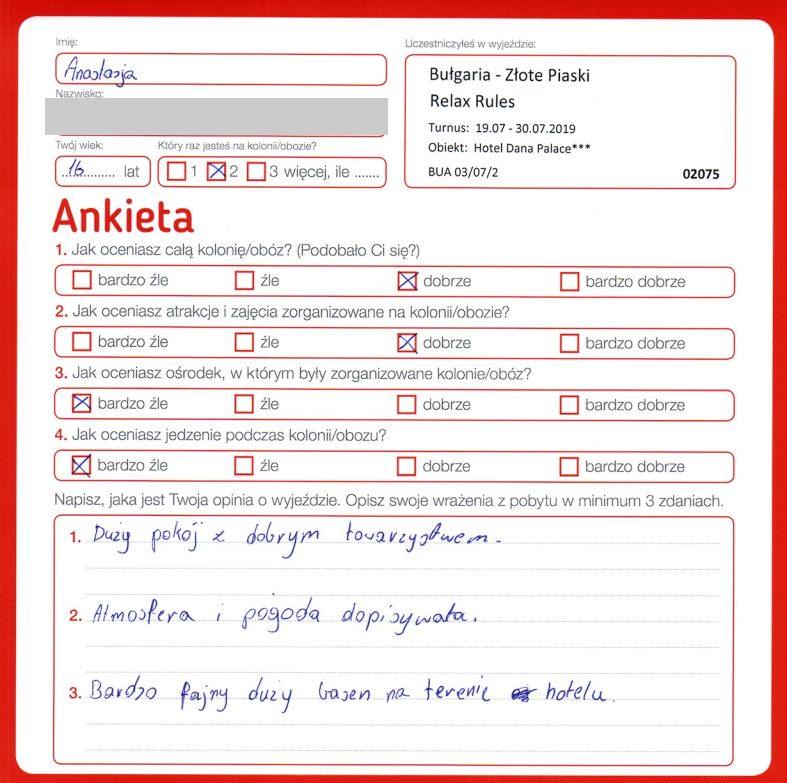 Imię:
Anastasja
Nazwisko:
Twój wiek:
16 lat
Który raz jesteś na kolonii/obozie?
1 2 3 więcej, ile .......
Uczestniczyłeś w wyjeździe:
Bułgaria - Złote Piaski
Relax Rules
Turnus: 19.07 - 30.07.2019
Obiekt: Hotel Dana Palace***
BUA 03/07/2 02075
Ankieta
1. Jak oceniasz całą kolonię/obóz? (Podobało Ci się?)
bardzo źle źle dobrze bardzo dobrze
2. Jak oceniasz atrakcje i zajęcia zorganizowane na kolonii/obozie?
bardzo źle źle dobrze bardzo dobrze
3. Jak oceniasz ośrodek, w którym były zorganizowane kolonie/obóz?
bardzo źle źle dobrze bardzo dobrze
4. Jak oceniasz jedzenie podczas kolonii/obozu?
bardzo źle źle dobrze bardzo dobrze
Napisz, jaka jest Twoja opinia o wyjeździe. Opisz swoje wrażenia z pobytu w minimum 3 zdaniach.
1. Duży pokój z dobrym towarzystwem.
2. Atmosfera i pogoda dopisywała.
3. Bardzo fajny duży basen na terenie hotelu.